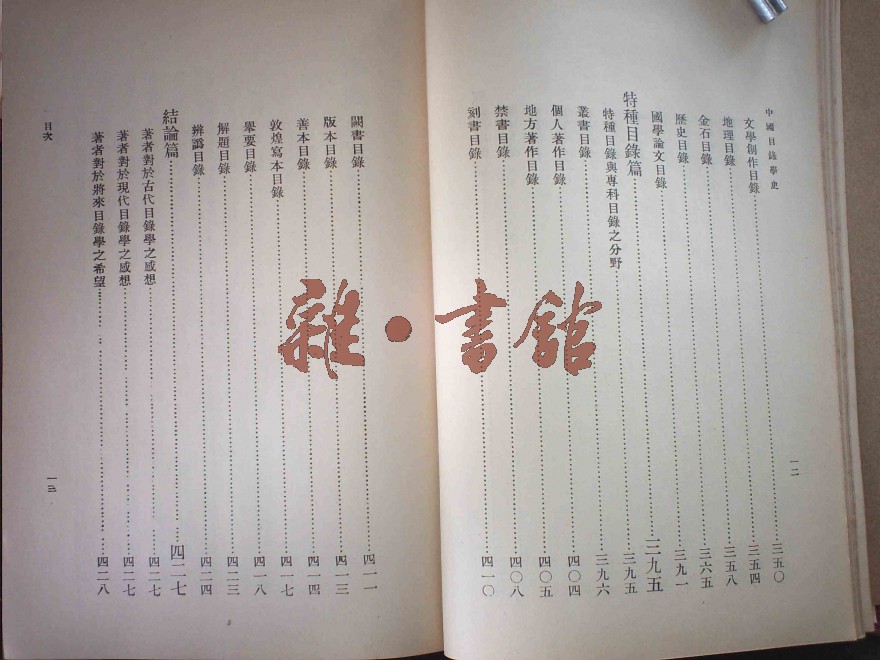 中國目錄學史
文學創作目錄……三五〇
地理目錄……三五四
金石目錄……三五八
歷史目錄……三六五
國學論文目錄……三九一
特種目錄篇……三九五
特種目錄與專科目錄之分野……三九五
叢書目錄……三九六
個人著作目錄……四〇四
地方著作目錄……四〇五
禁書目錄……四〇八
刻書目錄……四一〇
一二
闕書目錄……四一一
版本目錄……四一三
善本目錄……四一四
敦煌寫本目錄……四一七
舉要目錄……四一八
解題目錄……四二三
辨譌目錄……四二四
結論篇……四二七
著者對於古代目錄學之感想……四二七
著者對於現代目錄學之感想……四二七
著者對於將來目錄學之希望……四二八
目次
一三
雜·書館